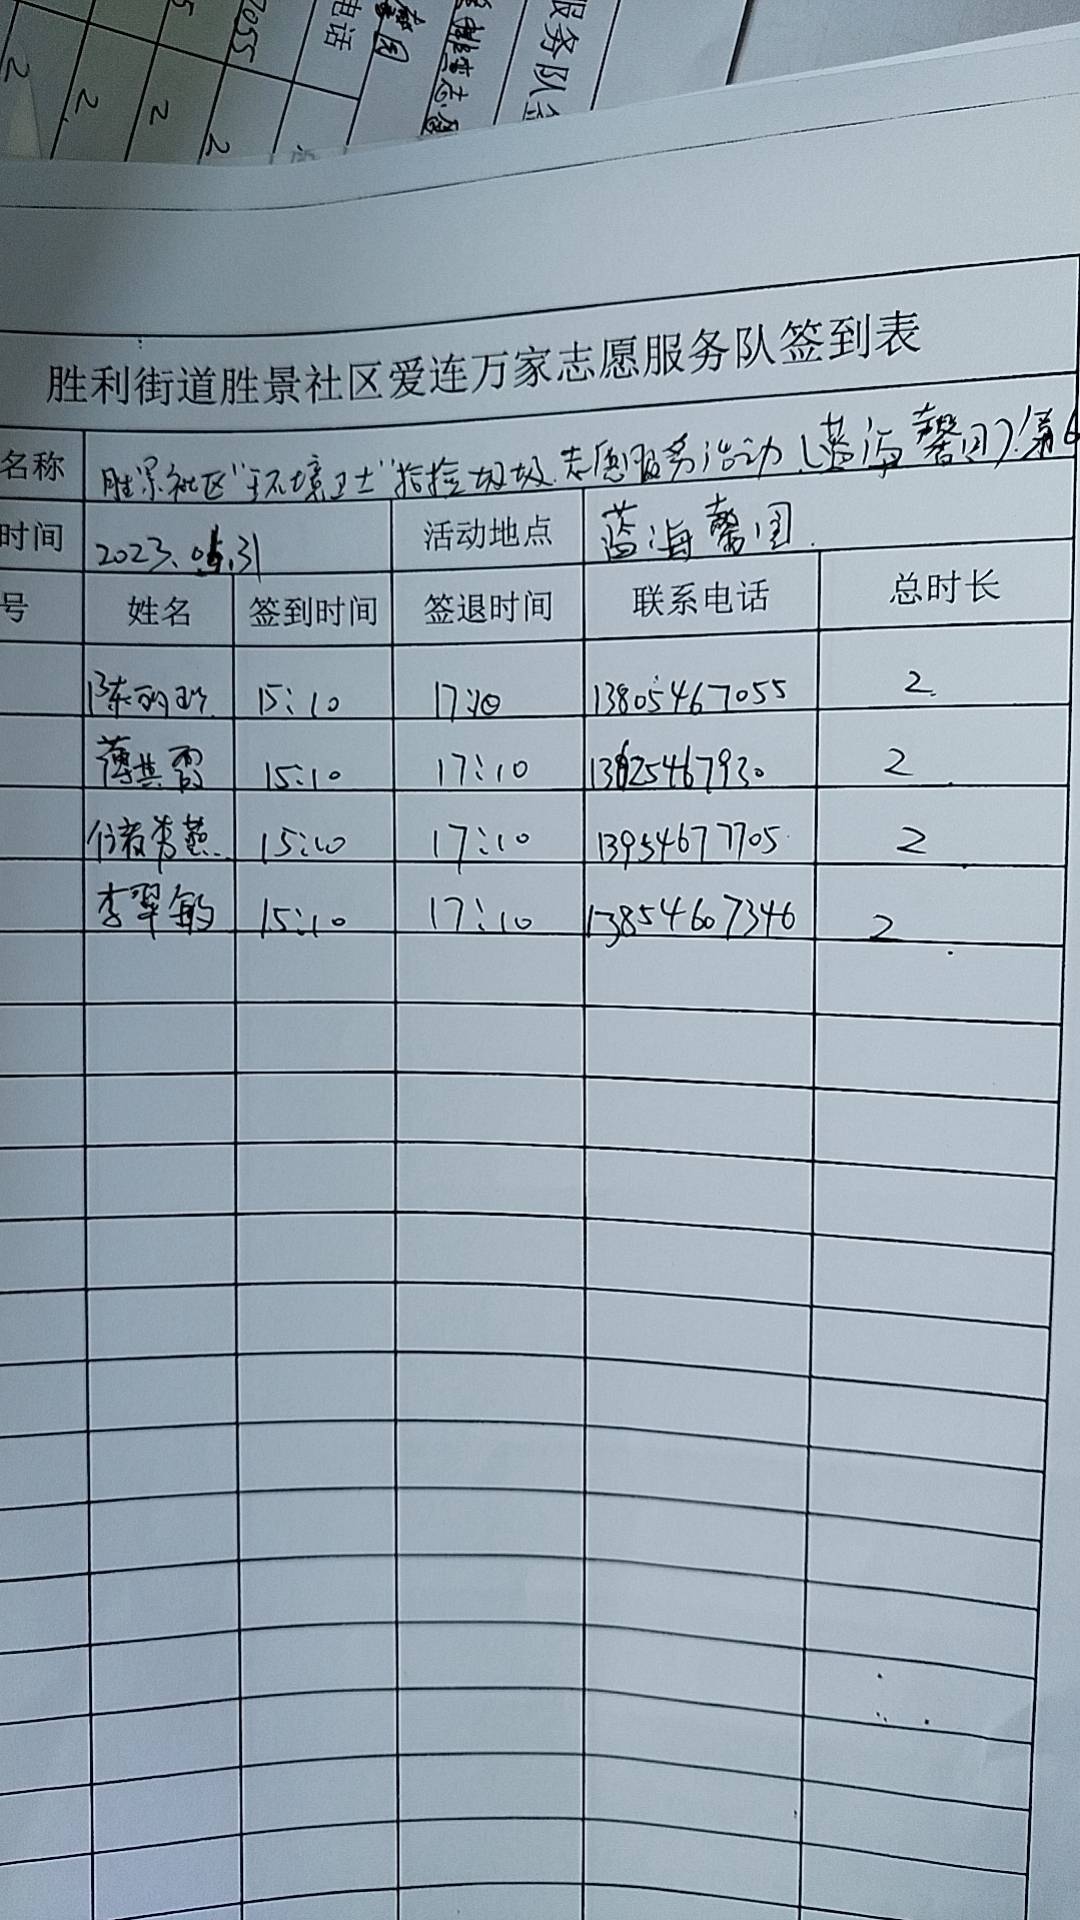 服务队签
电话
7055
2
2
2
2
胜利街道胜景社区爱连万家志愿服务队签到表
名称 胜景社区"环境卫士"捡捡垃圾志愿服务活动(蓝海馨园)第6
时间 2023.05.31 活动地点 蓝海馨园
号 姓名 签到时间 签退时间 联系电话 总时长
15:10 17:10 13805467055 2
薄其霞 15:10 17:10 2
15:10 17:10 13954677705 2
李翠敏 15:10 17:10 13854607346 2